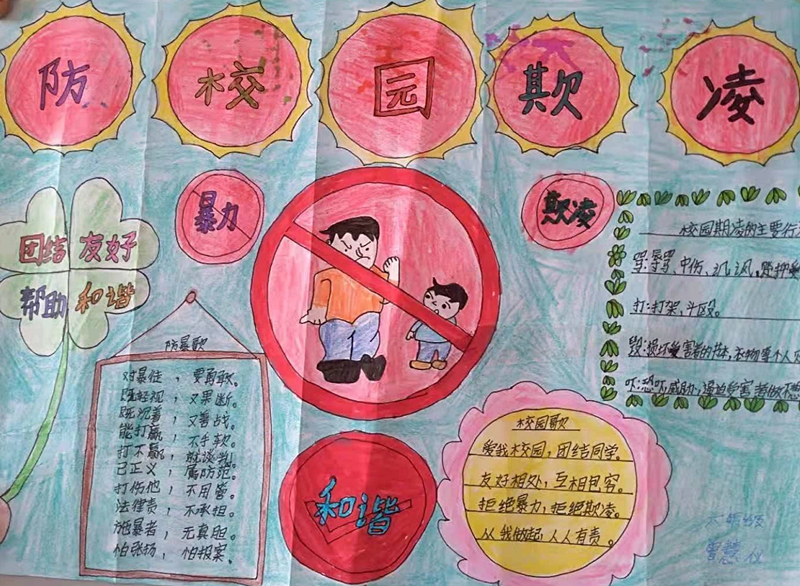 防校园欺凌
团结 友好
帮助 和谐
暴力
欺凌
防暴歌
对暴徒，要勇敢。
既轻视，又果断。
既沉着，又善战。
能打赢，不手软。
打不赢，就谈判。
己正义，属防范。
打伤他，不用害。
法律责，不承担。
施暴者，无真胆。
怕张扬，怕报案。
和谐
校园歌
爱我校园，团结同学。
友好相处，互相包容。
拒绝暴力，拒绝欺凌。
从我做起，人人有责。
校园期凌的主要行
骂：辱骂、中伤、讥讽、
打：打架、斗殴。
毁：损坏受害者的书本、衣物等个人
吓：恐吓、威胁、逼迫受害者做不想
六年级